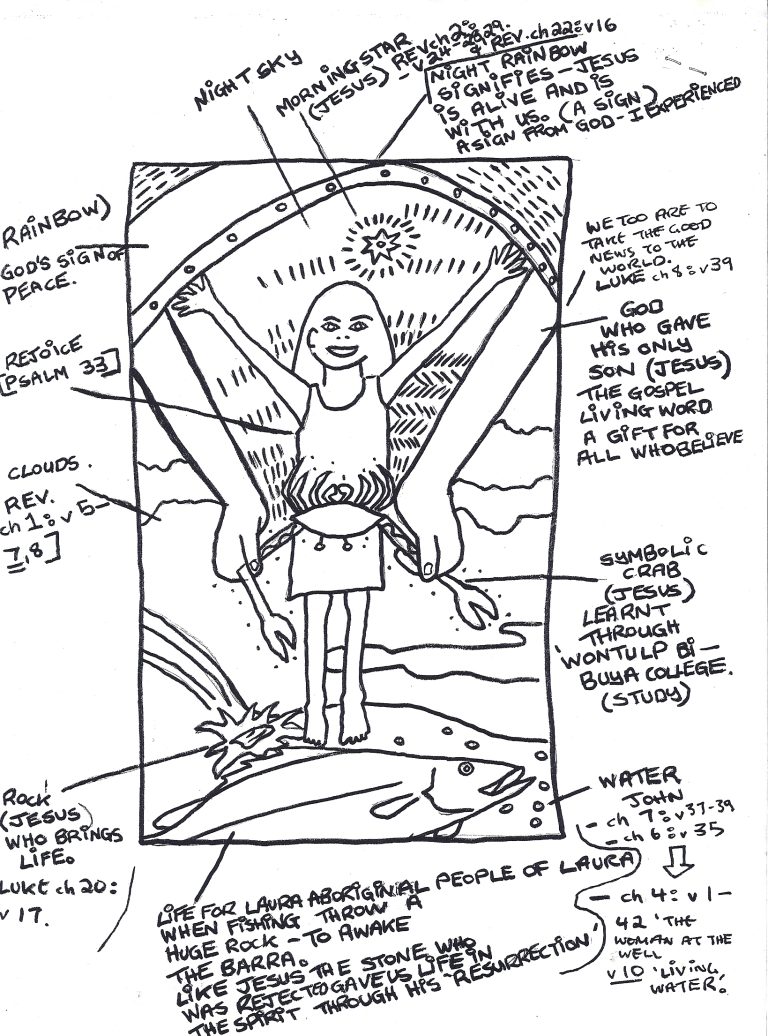 NIGHT SKY
MORNING STAR
(JESUS) REV ch 2:
-v24-2929.
& REV. ch 22: v16
NIGHT RAINBOW
SIGNIFIES - JESUS
IS ALIVE AND IS
WITH US. (A SIGN)
A SIGN FROM GOD - I EXPERIENCED
RAINBOW)
GOD'S SIGN OF
PEACE.
REJOICE
[PSALM 33]
CLOUDS.
REV.
ch 1: v 5-
7,8]
WE TOO ARE TO
TAKE THE GOOD
NEWS TO THE
WORLD.
LUKE ch 8: v39
GOD
WHO GAVE
HIS ONLY
SON (JESUS)
THE GOSPEL
LIVING WORD
A GIFT FOR
ALL WHO BELIEVE
SYMBOLIC
CRAB
(JESUS)
LEARNT
THROUGH
WONTULP BI-
BUYA COLLEGE.
(STUDY)
ROCK
(JESUS)
WHO BRINGS
LIFE.
LUKE ch 20:
v 17.
WATER
JOHN
- ch 7: v37-39
- ch 6: v 35
- ch 4: v 1-
42 'THE
WOMAN AT THE
WELL
v10 'LIVING,
WATER.'
LIFE FOR LAURA ABORIGINIAL PEOPLE OF LAURA
WHEN FISHING THROW A
HUGE ROCK - TO AWAKE
THE BARRA.
LIKE JESUS THE STONE WHO
WAS REJECTED GAVE US LIFE IN
THE SPIRIT THROUGH HIS 'RESURRECTION'